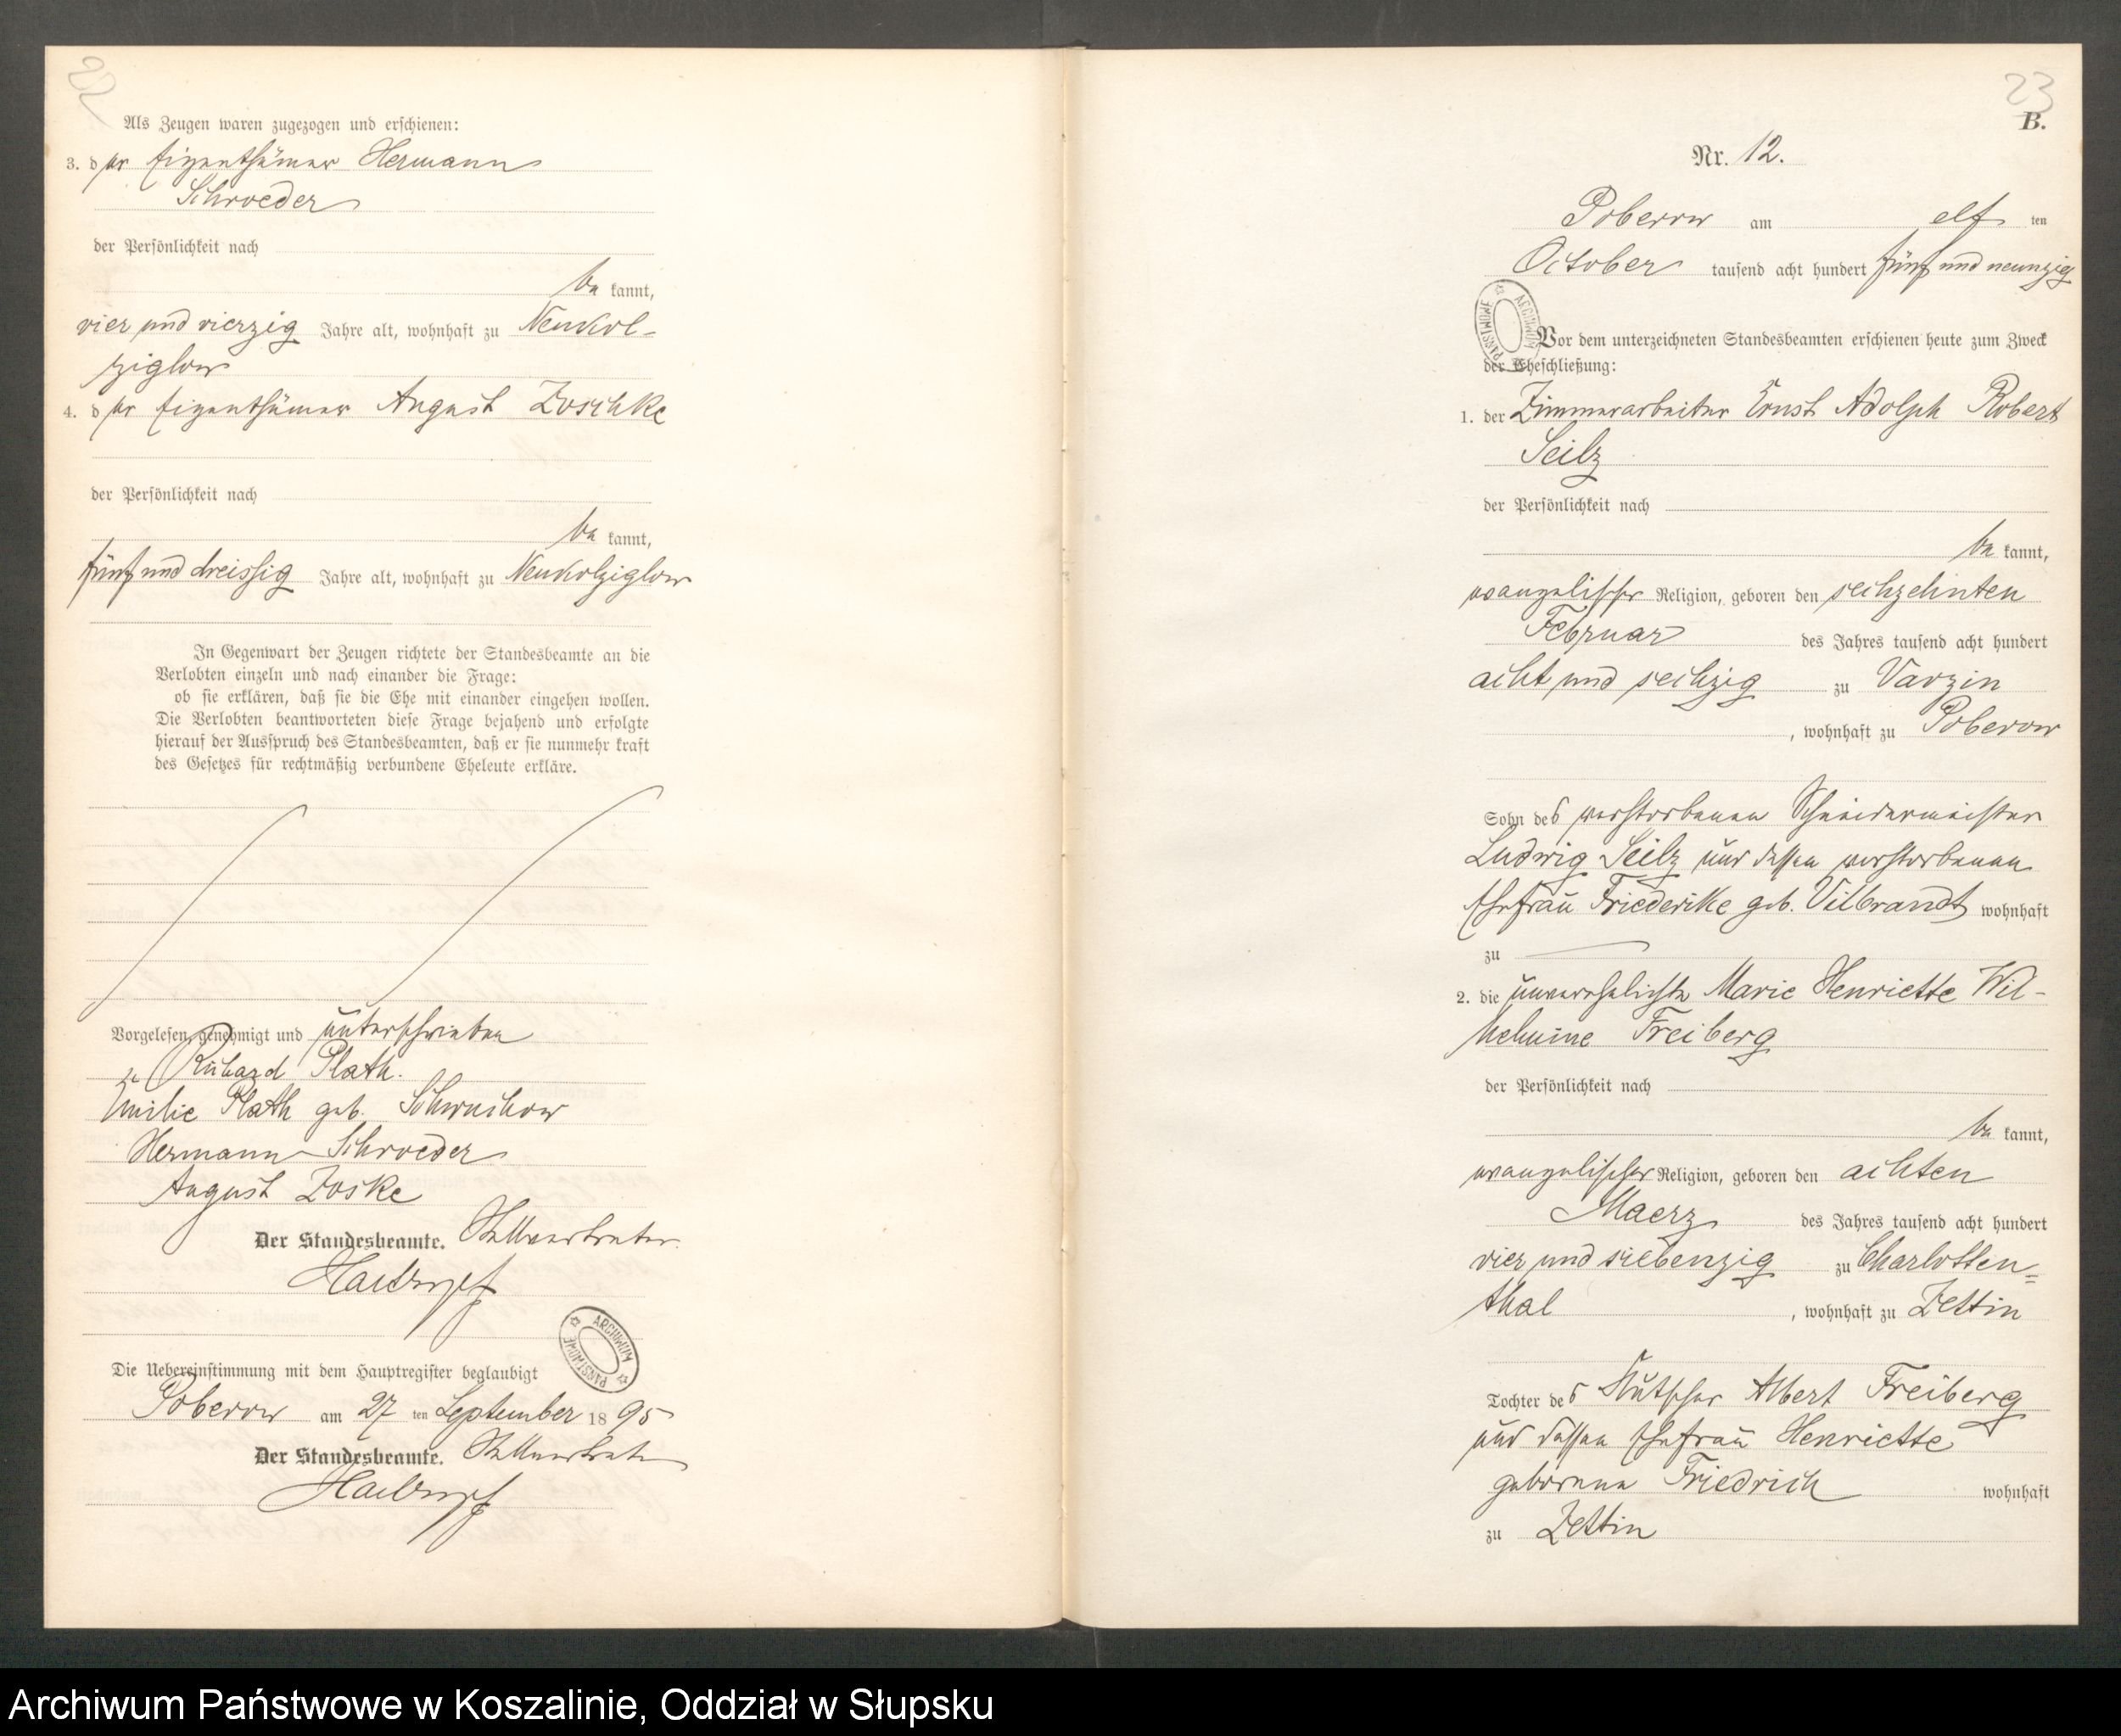 22
Als Zeugen waren zugezogen und erschienen:
3. der Eigenthümer Hermann
Schroeder
der Persönlichkeit nach
be kannt,
vier und vierzig Jahre alt, wohnhaft zu Neukol-
ziglow
4. der Eigenthümer August Zoschke
der Persönlichkeit nach
be kannt,
fünf und dreissig Jahre alt, wohnhaft zu Neukolziglow
In Gegenwart der Zeugen richtete der Standesbeamte an die
Verlobten einzeln und nach einander die Frage:
ob sie erklären, daß sie die Ehe mit einander eingehen wollen.
Die Verlobten beantworteten diese Frage bejahend und erfolgte
hierauf der Ausspruch des Standesbeamten, daß er sie nunmehr kraft
des Gesetzes für rechtmäßig verbundene Eheleute erkläre.
Vorgelesen, genehmigt und unterschrieben
Richard Plath.
Emilie Plath geb. Schwuchow
Hermann Schroeder
August Zoske
Der Standesbeamte. Stellvertreter.
ARCHIWUM PAŃSTWOWE
Die Uebereinstimmung mit dem Hauptregister beglaubigt
Poberow am 27 ten September 18 95
Der Standesbeamte. Stellvertreter
23
B.
Nr. 12.
Poberow am elf ten
October tausend acht hundert fünf und neunzig
ARCHIWUM PAŃSTWOWE
Vor dem unterzeichneten Standesbeamten erschienen heute zum Zweck
der Eheschließung:
1. der Zimmerarbeiter Ernst Adolph Robert
Seilz
der Persönlichkeit nach
be kannt,
evangelischer Religion, geboren den sechzehnten
Februar des Jahres tausend acht hundert
acht und sechzig zu Varzin
, wohnhaft zu Poberow
Sohn des verstorbenen Schneidermeister
Ludwig Seilz und dessen verstorbenen
Ehefrau Friederike geb. Vilbrandt wohnhaft
zu
2. die unverehelichte Marie Henriette Wil-
helmine Freiberg
der Persönlichkeit nach
be kannt,
evangelischer Religion, geboren den achten
Maerz des Jahres tausend acht hundert
vier und siebenzig zu Charlotten=
thal , wohnhaft zu Zettin
Tochter des Kutscher Albert Freiberg
und dessen Ehefrau Henriette
geborene Friedrich wohnhaft
zu Zettin
Archiwum Państwowe w Koszalinie, Oddział w Słupsku